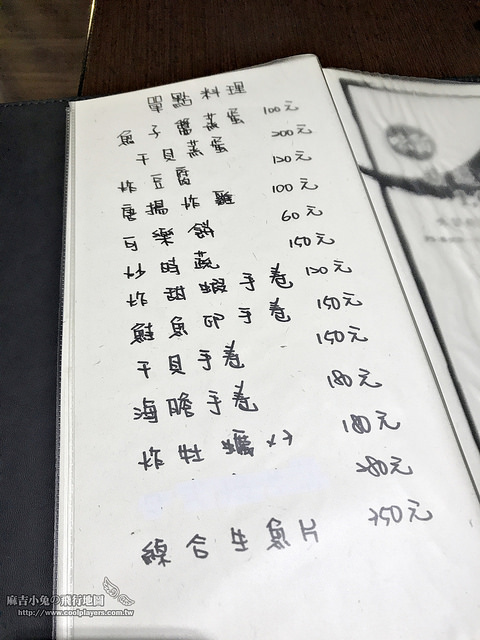 單點料理
魚子醬蒸蛋 100元
干貝蒸蛋 200元
炸豆腐 120元
唐揚炸雞 100元
可樂餅 60元
炒時蔬 150元
炸甜蝦手卷 120元
鮭魚卵手卷 150元
干貝手卷 150元
海膽手卷 180元
炸牡蠣x3 180元
280元
綜合生魚片 350元
麻吉小兔の飛行地圖
http://www.coolplayers.com.tw